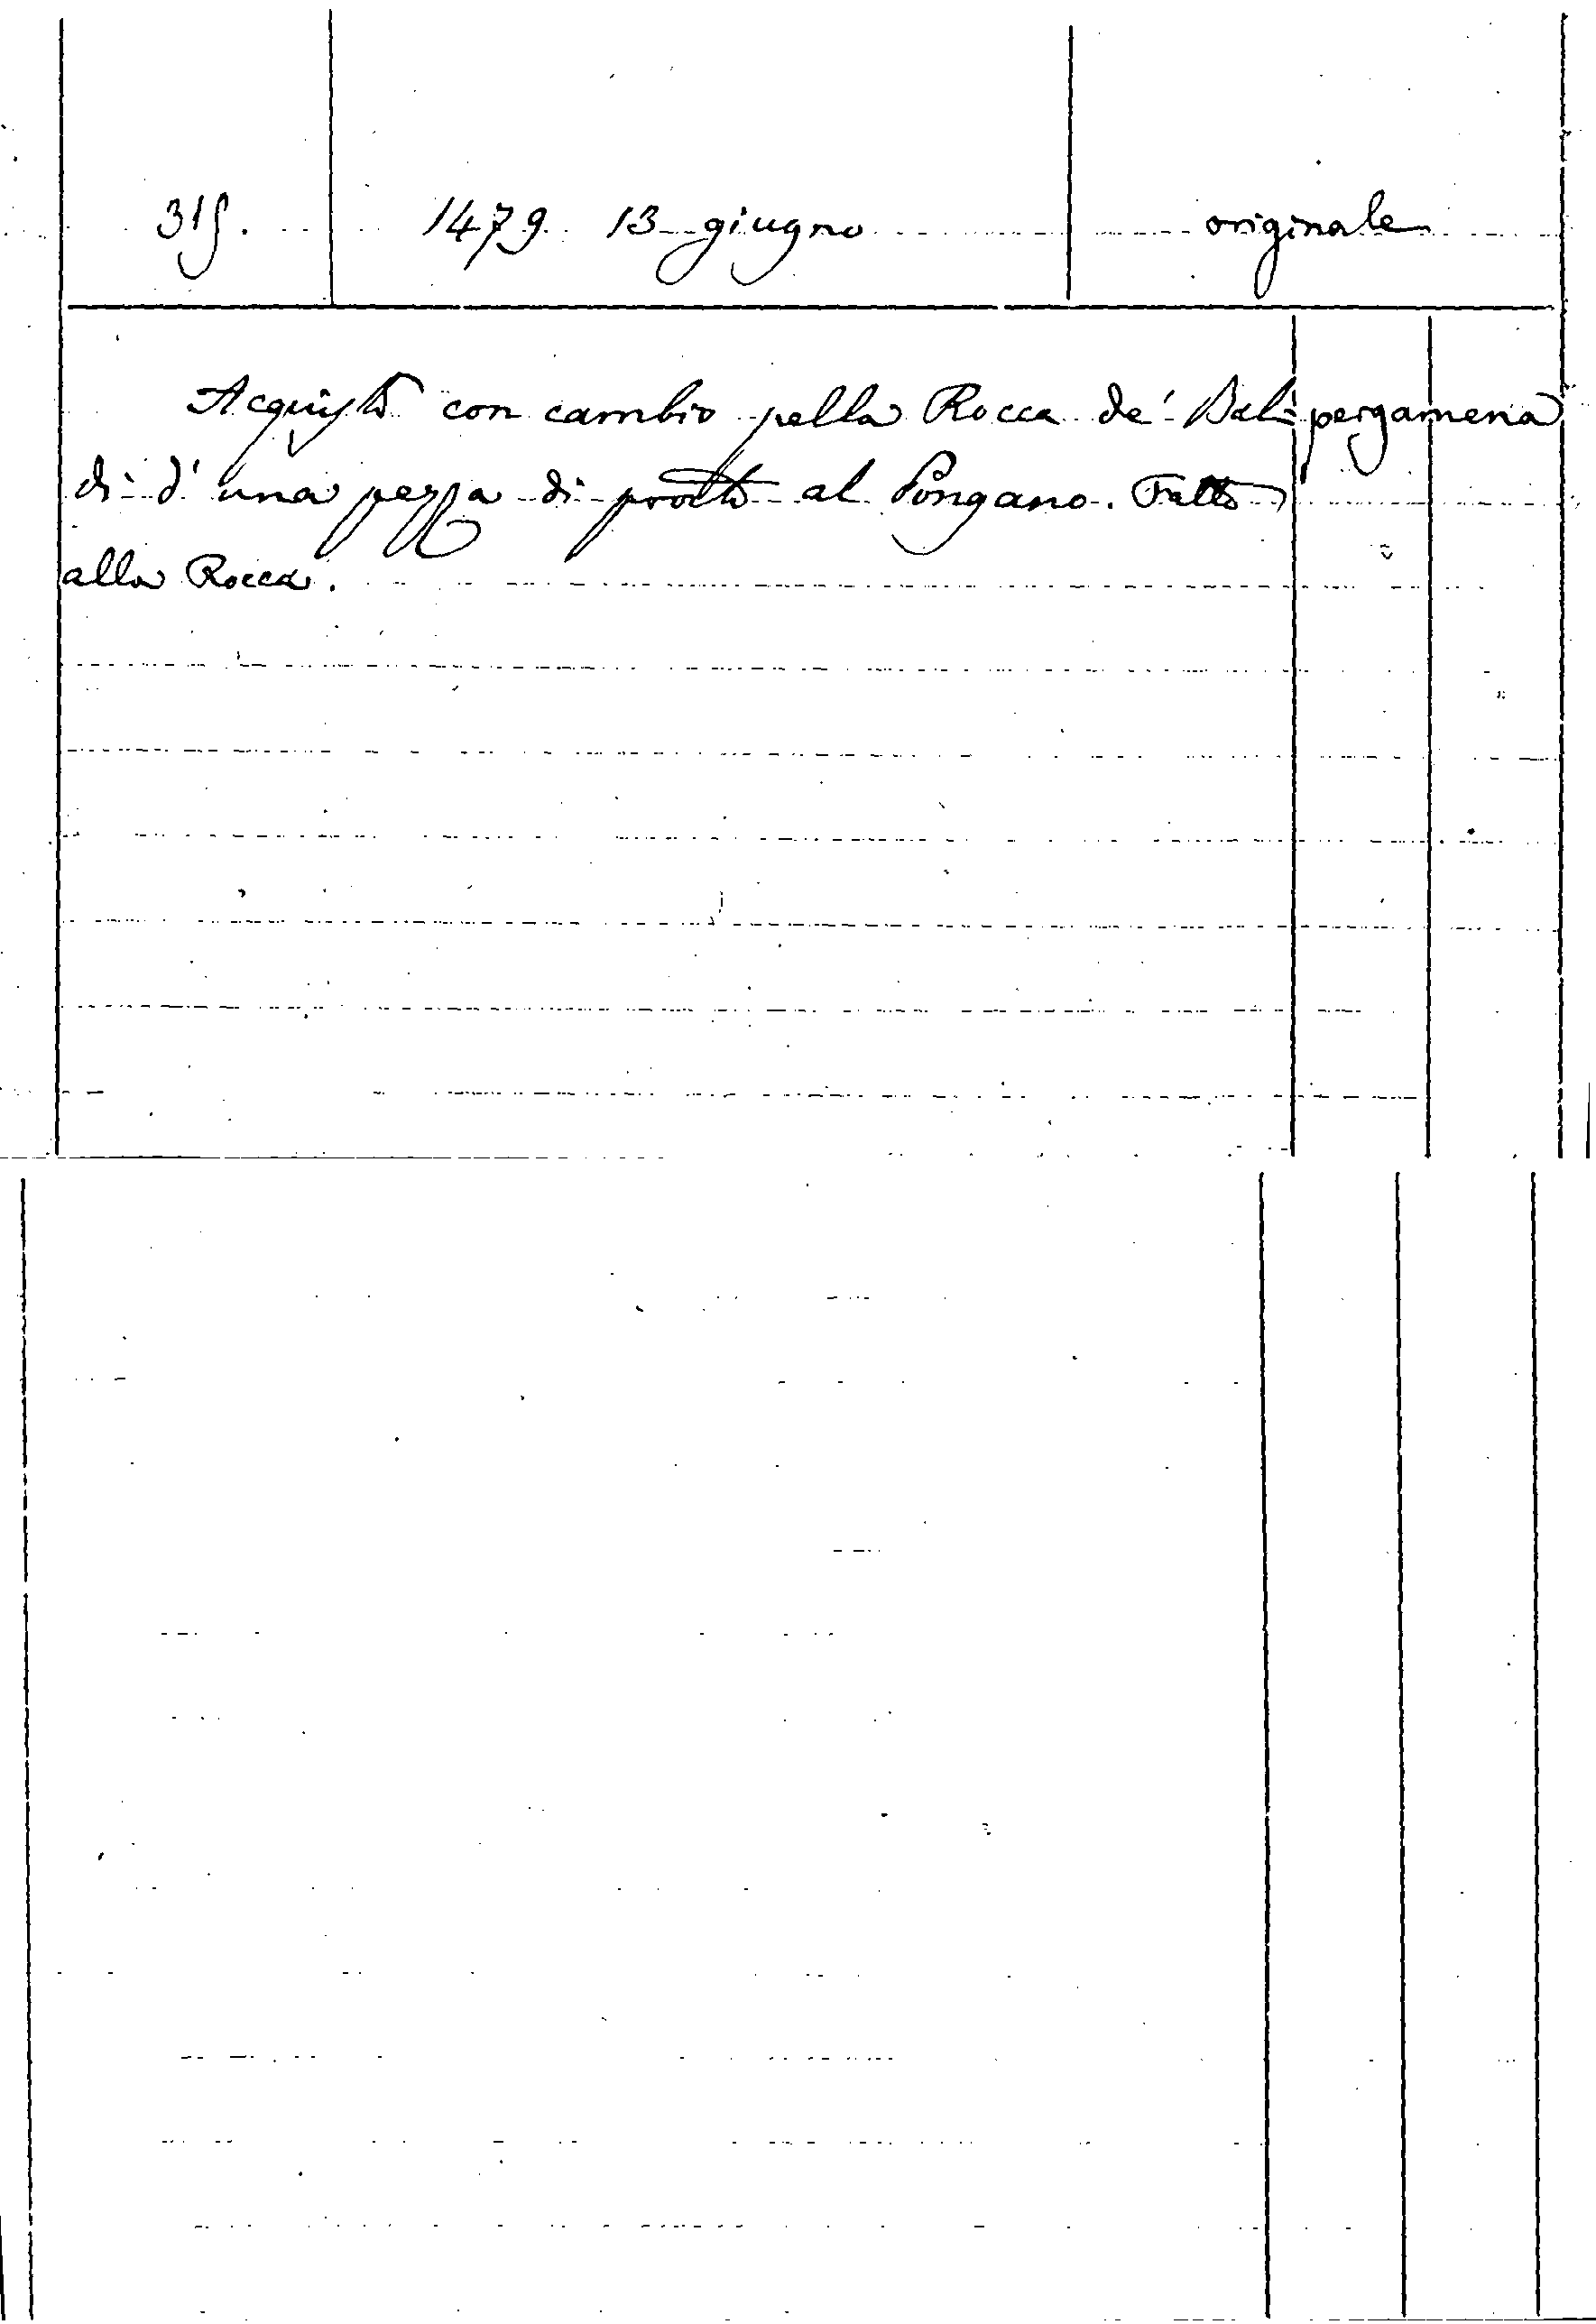 315. 1479 13 giugno originale
Acquisto con cambio pella Rocca de' Bal= pergamena
di d' una pezza di prato al Pongano. Fatto
alla Rocca.